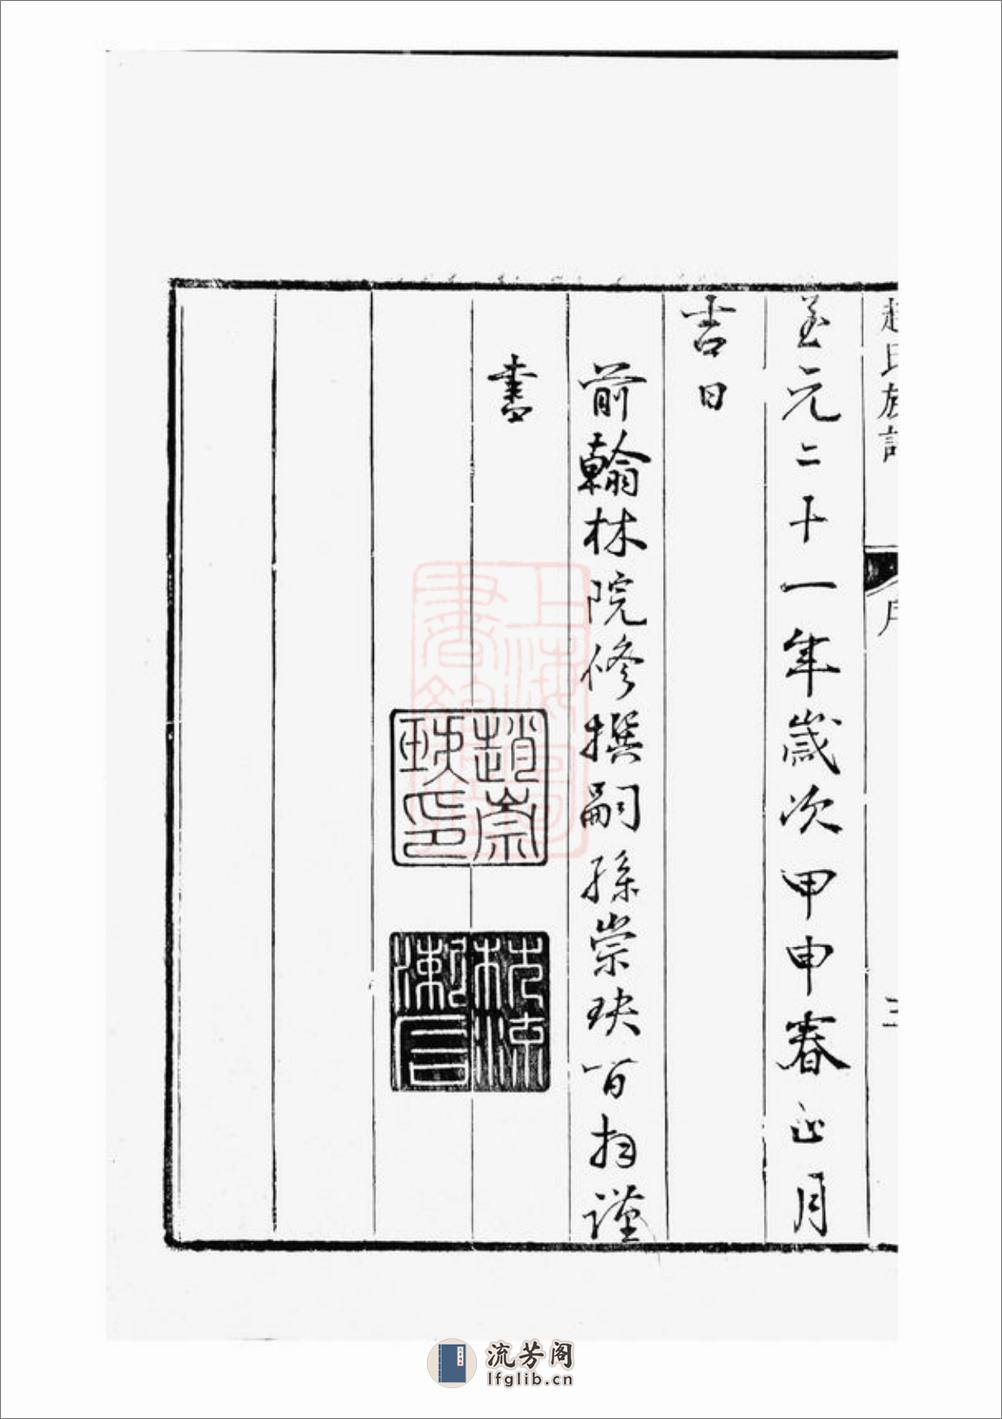 趙氏族譜
序
三
至元二十一年歲次甲申春正月
吉日
前翰林院修撰嗣孫崇玞百拜謹
書
趙崇
玞印
上海圖
書館藏
流芳阁
lfglib.cn